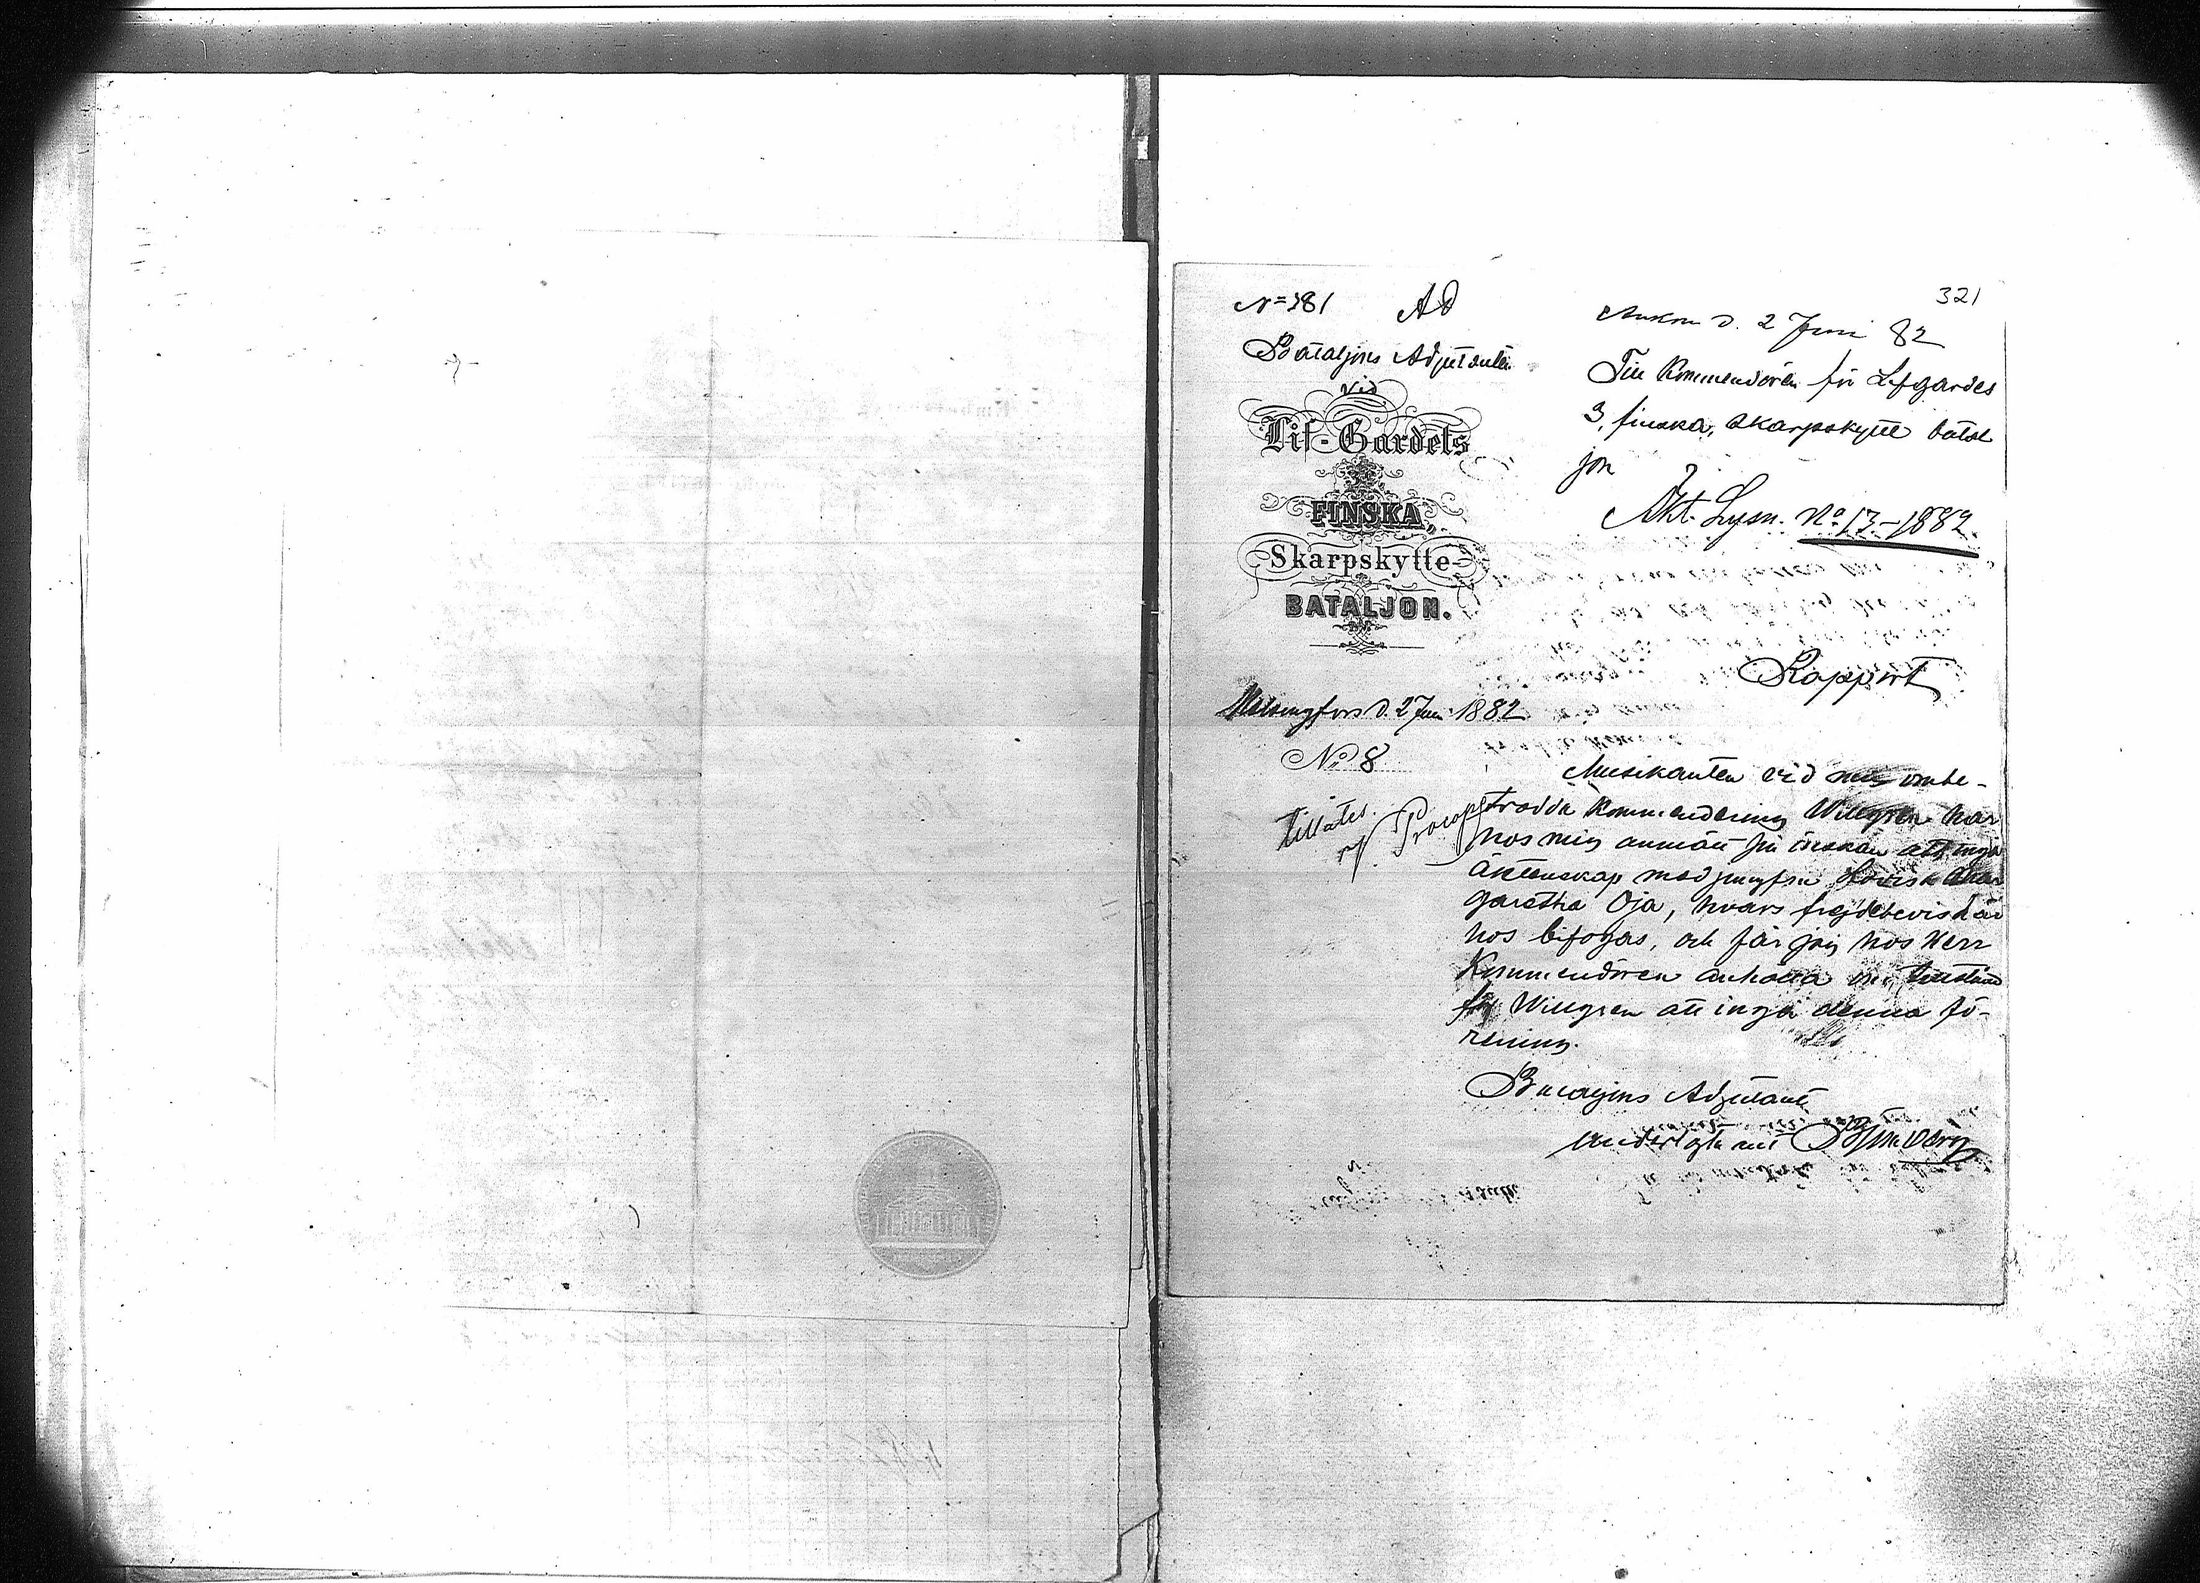 321
N=381 Ad
Bataljons Adjutanten
vid
Lif-Gardets
FINSKA
Skarpskytte-
BATALJON.
Helsingfors d. 2 Juni 1882
No 8
Tillåtes.
Ankom d. 2 Juni 82
Till Kommendören för Lifgardes
3, finska, skarpskytte batal
jon
Akt. Lysn. No 13-1882.
Rapport
Musikanten vid min ombe-
trodda Kommendering Willgren har
hos mig anmält sin önskan att ingå
äktenskap med jungfru Lovisa Mar
garetha Oja, hvars frejdebevis här
hos bifogas, och får jag hos Herr
Kommendören anhålla om tillstånd
för Willgren att ingå denna fö-
rening.
Bataljons Adjutant
Underlöjtnant